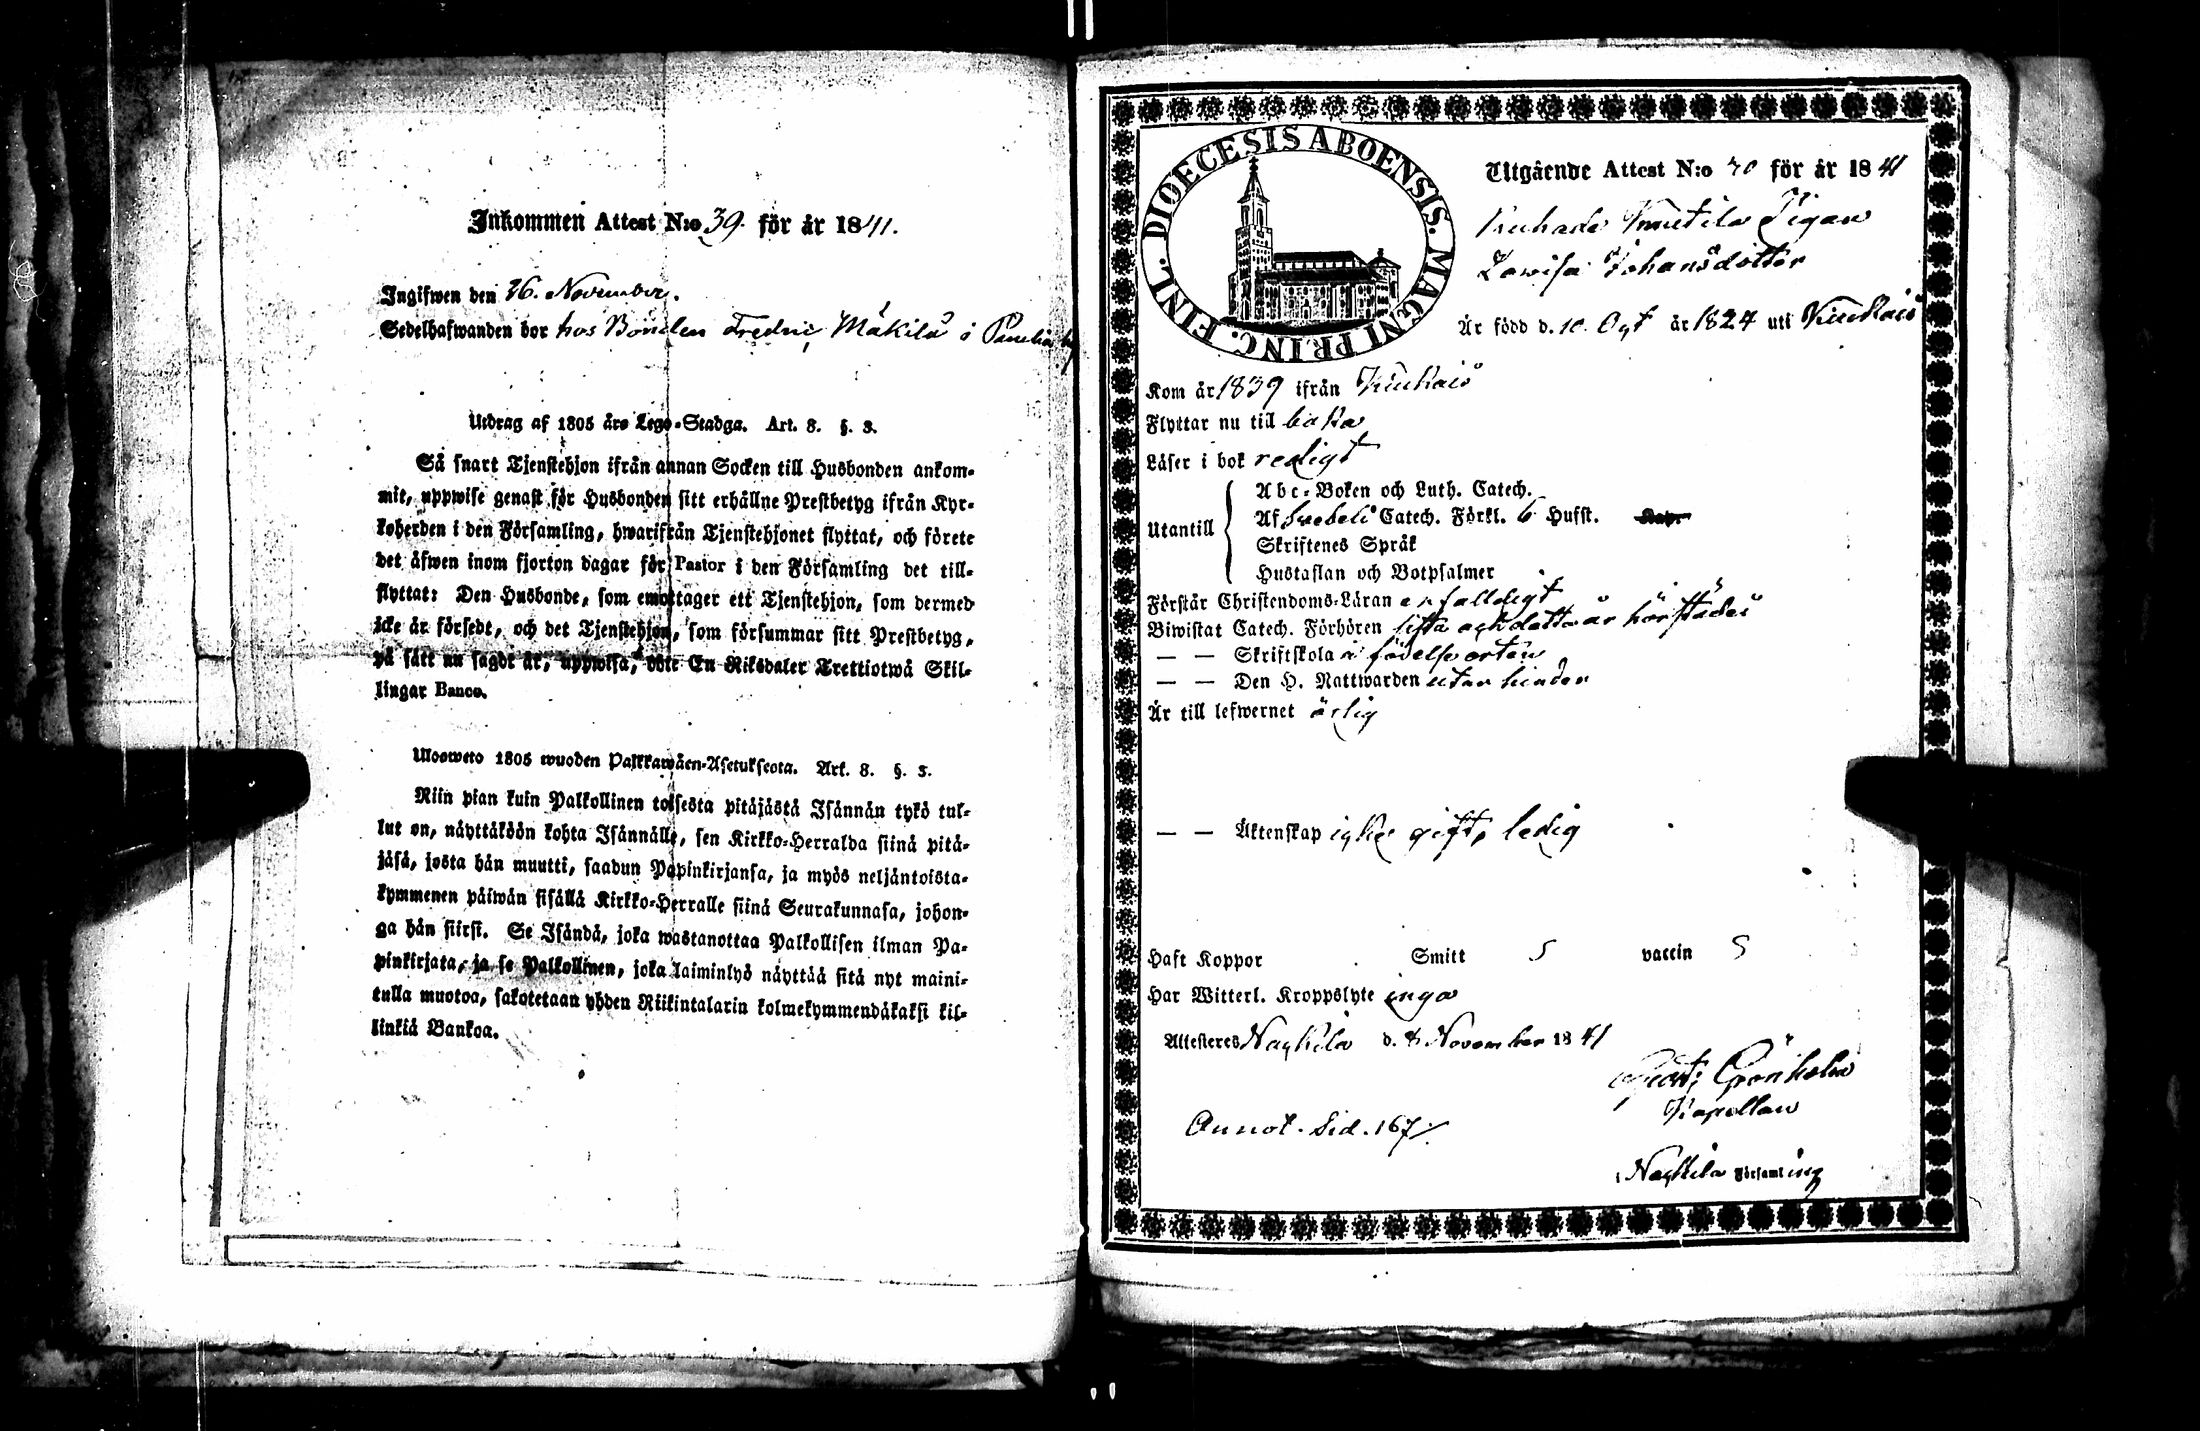 Inkommen Attest N:o 39. för år 1841.
Ingifwen den 26. November.
Sedelhafwanden bor hos Bonden Fredric Mäkilä i Panelia by
Utdrag af 1805 års Lego-Stadga. Art. 8. §. 3.
Så snart Tjenstehjon ifrån annan Socken till Husbonden ankom-
mit, uppwise genast för Husbonden sitt erhållne Prestbetyg ifrån Kyr-
koherden i den Församling, hwarifrån Tjenstehjonet flyttat, och förete
det äfwen inom fjorton dagar för Pastor i den Församling det till-
flyttat: Den Husbonde, som emottager ett Tjenstehjon, som dermed
icke är försedt, och det Tjenstehjon, som försummar sitt Prestbetyg,
på sätt nu sagdt är, uppwisa, böte En Riksdaler Trettiotwå Skil-
lingar Banco.
Ulosweto 1805 wuoden Palkkawäen-Asetuksesta. Art. 8. §. 3.
Niin pian kuin Palkollinen toisesta pitäjästä Isännän tykö tul-
lut on, näyttäköön kohta Isännälle, sen Kirkko-Herralda siinä pitä-
jäsä, josta hän muutti, saadun Papinkirjansa, ja myös neljäntoista-
kymmenen päiwän sisällä Kirkko-Herralle siinä Seurakunnasa, johon-
ga hän siirsi. Se Isändä, joka wastanottaa Palkollisen ilman Pa-
pinkirjata, ja se Palkollinen, joka laiminlyö näyttää sitä nyt maini-
tulla muotoa, sakotetaan yhden Riikintalarin kolmekymmendäkaksi kil-
linkiä Bankoa.
DIOECESIS ABOENSIS. MAGNI PRINC. FINL.
Utgående Attest N:o 70 för år 1841
Knutila Pigan
Lowisa Johansdotter
Är född d. 10. Oct år 1824 uti Kiukais
Kom år 1839 ifrån Kiukais
Flyttar nu till baka
Läser i bok redigt
Utantill
Abc-Boken och Luth. Catech.
Af Swebeli Catech. Förkl. 6 Hufst.
Skriftenes Språk
Hustaflan och Botpsalmer
Förstår Christendoms-Läran enfalldigt
Biwistat Catech. Förhören sista och detta år härstädes
— — Skriftskola i födelseorten
— — Den H. Nattwarden utan hinder
Är till lefwernet ärlig
— — Äktenskap icke gift, ledig
Haft Koppor Smitt vaccin
Har Witterl. Kroppslyte inga
Attesteres Nackila d. 8 November 1841
Grönholm
Kapellan
Annot. Sid. 167
Nackila Församling